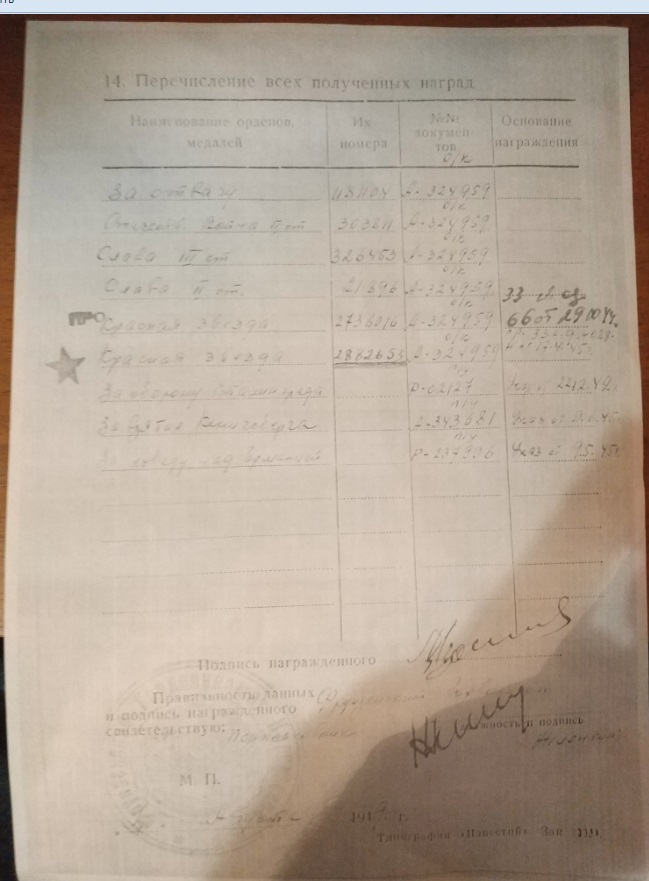 14. Перечисление всех полученных наград
Наименование орденов, медалей
Их номера
№№ документов
Основание награждения
о/к
За отвагу А-324959
о/к
Отечеств. Война II ст 363211 А-324959
о/к
Слава III ст 326453 А-324959
о/к
Слава II ст. 21396 А-324959
о/к
Красная звезда 2736016 А-324959 66 от 29.10.44г.
о/к
Красная звезда 2882653 А-324959
п/у
За оборону Сталинграда Р-02127 Указ от 22.12.42г.
п/у
За взятие Кенигсберга А-343681 Указ от 9.6.45г
п/у
За победу над Германией Р-237996 Указ от 9.5.45г
Подпись награжденного
Правильность данных
и подпись награжденного
свидетельствую:
Должность и подпись
М. П.
Августа 194 г.
Типография «Известий». Зак